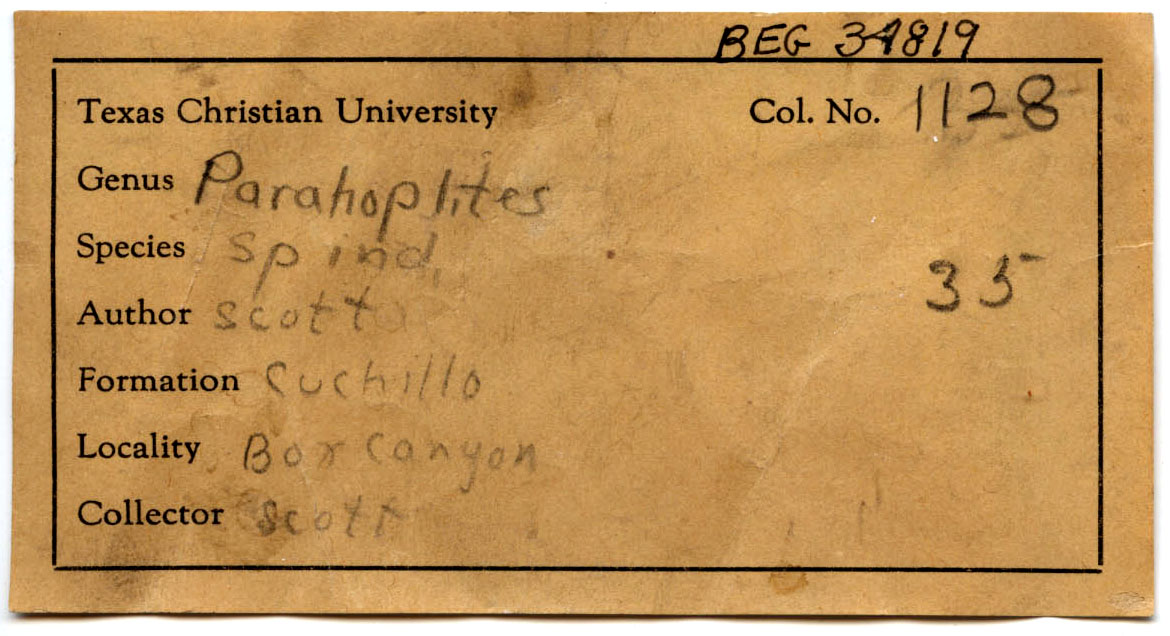 BEG 34819
Texas Christian University Col. No. 1128
Genus Parahoplites
Species sp ind.
35
Author Scott
Formation Cuchillo
Locality Box Canyon
Collector Scott